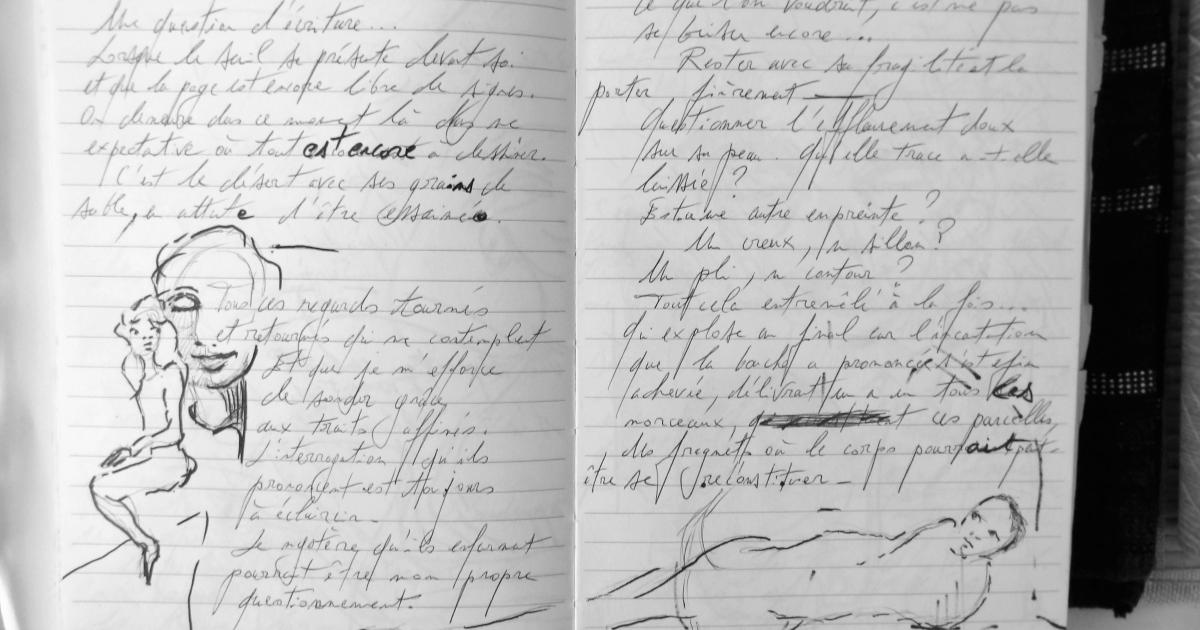 Une question d'écriture...
Lorsque le seuil se présente devant soi
et que la page est encore libre de signes.
On demeure dans ce moment là dans une
expectative où tout est encore à dessiner.
C'est le désert avec ses grains de
sable, en attente d'être essaimé.
Tous ces regards tournés
et retournés qui me contemplent
Et que je m'efforce
de sonder grâce
aux traits affinés.
L'interrogation qu'ils
prononcent est toujours
à éclaircir.
Le mystère qu'ils enferment
pourrait être mon propre
questionnement.
ce que l'on voudrait, c'est ne pas
se briser encore...
Rester avec sa fragilité et la
porter fièrement
Questionner l'effleurement doux
sur sa peau. Qu'elle trace a-t-elle
laissée ?
Est-ce une autre empreinte ?
Un creux, un sillon ?
Un pli, un contour ?
Tout cela entremêlé à la fois...
qui explose au final car l'incantation
que la bouche a prononcée s'est enfin
achevée, délivrant un à un tous les
morceaux, ces parcelles,
des fragments où le corps pourrait peut-
être se reconstituer -